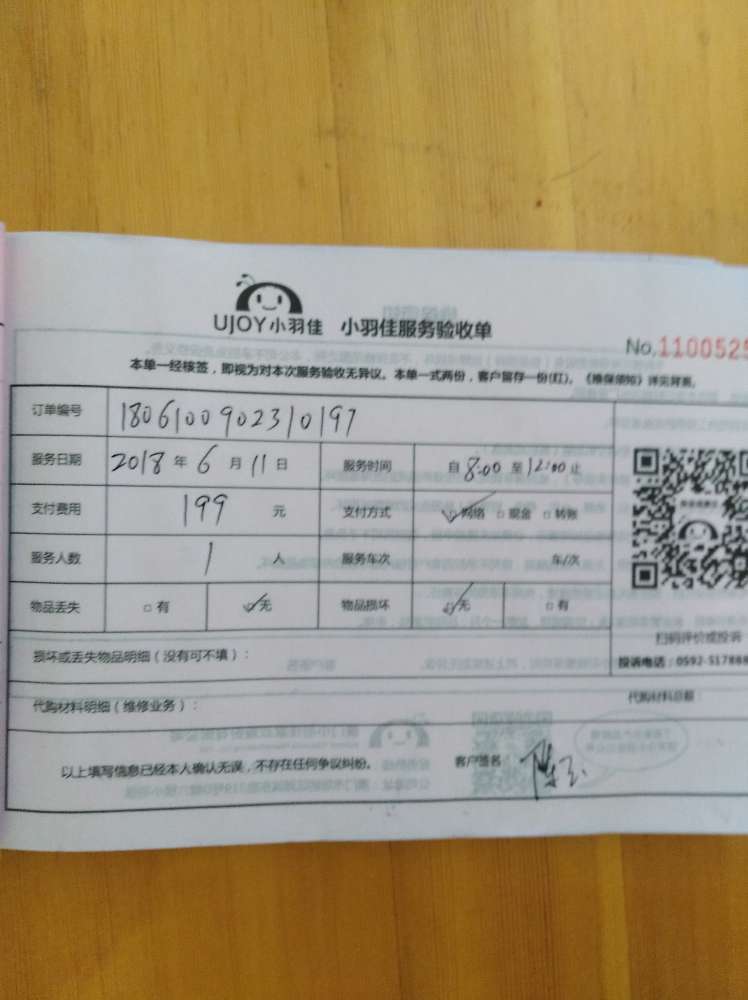 UJOY小羽佳 小羽佳服务验收单
No.1100525
本单一经核签，即视为对本次服务验收无异议。本单一式两份，客户留存一份(红)。《维保须知》详见背面。
订单编号 180610090231 0197
服务日期 2018 年 6 月 11 日 服务时间 自 8:00 至 12:00 止
支付费用 199 元 支付方式 ☑网络 □现金 □转账
服务人数 1 人 服务车次 车/次
物品丢失 □有 ☑无 物品损坏 ☑无 □有
扫码评价或投诉
损坏或丢失物品明细（没有可不填）：
投诉电话：0592-517888
代购材料明细（维修业务）： 代购材料总额：
以上填写信息已经本人确认无误，不存在任何争议纠纷。 客户签名